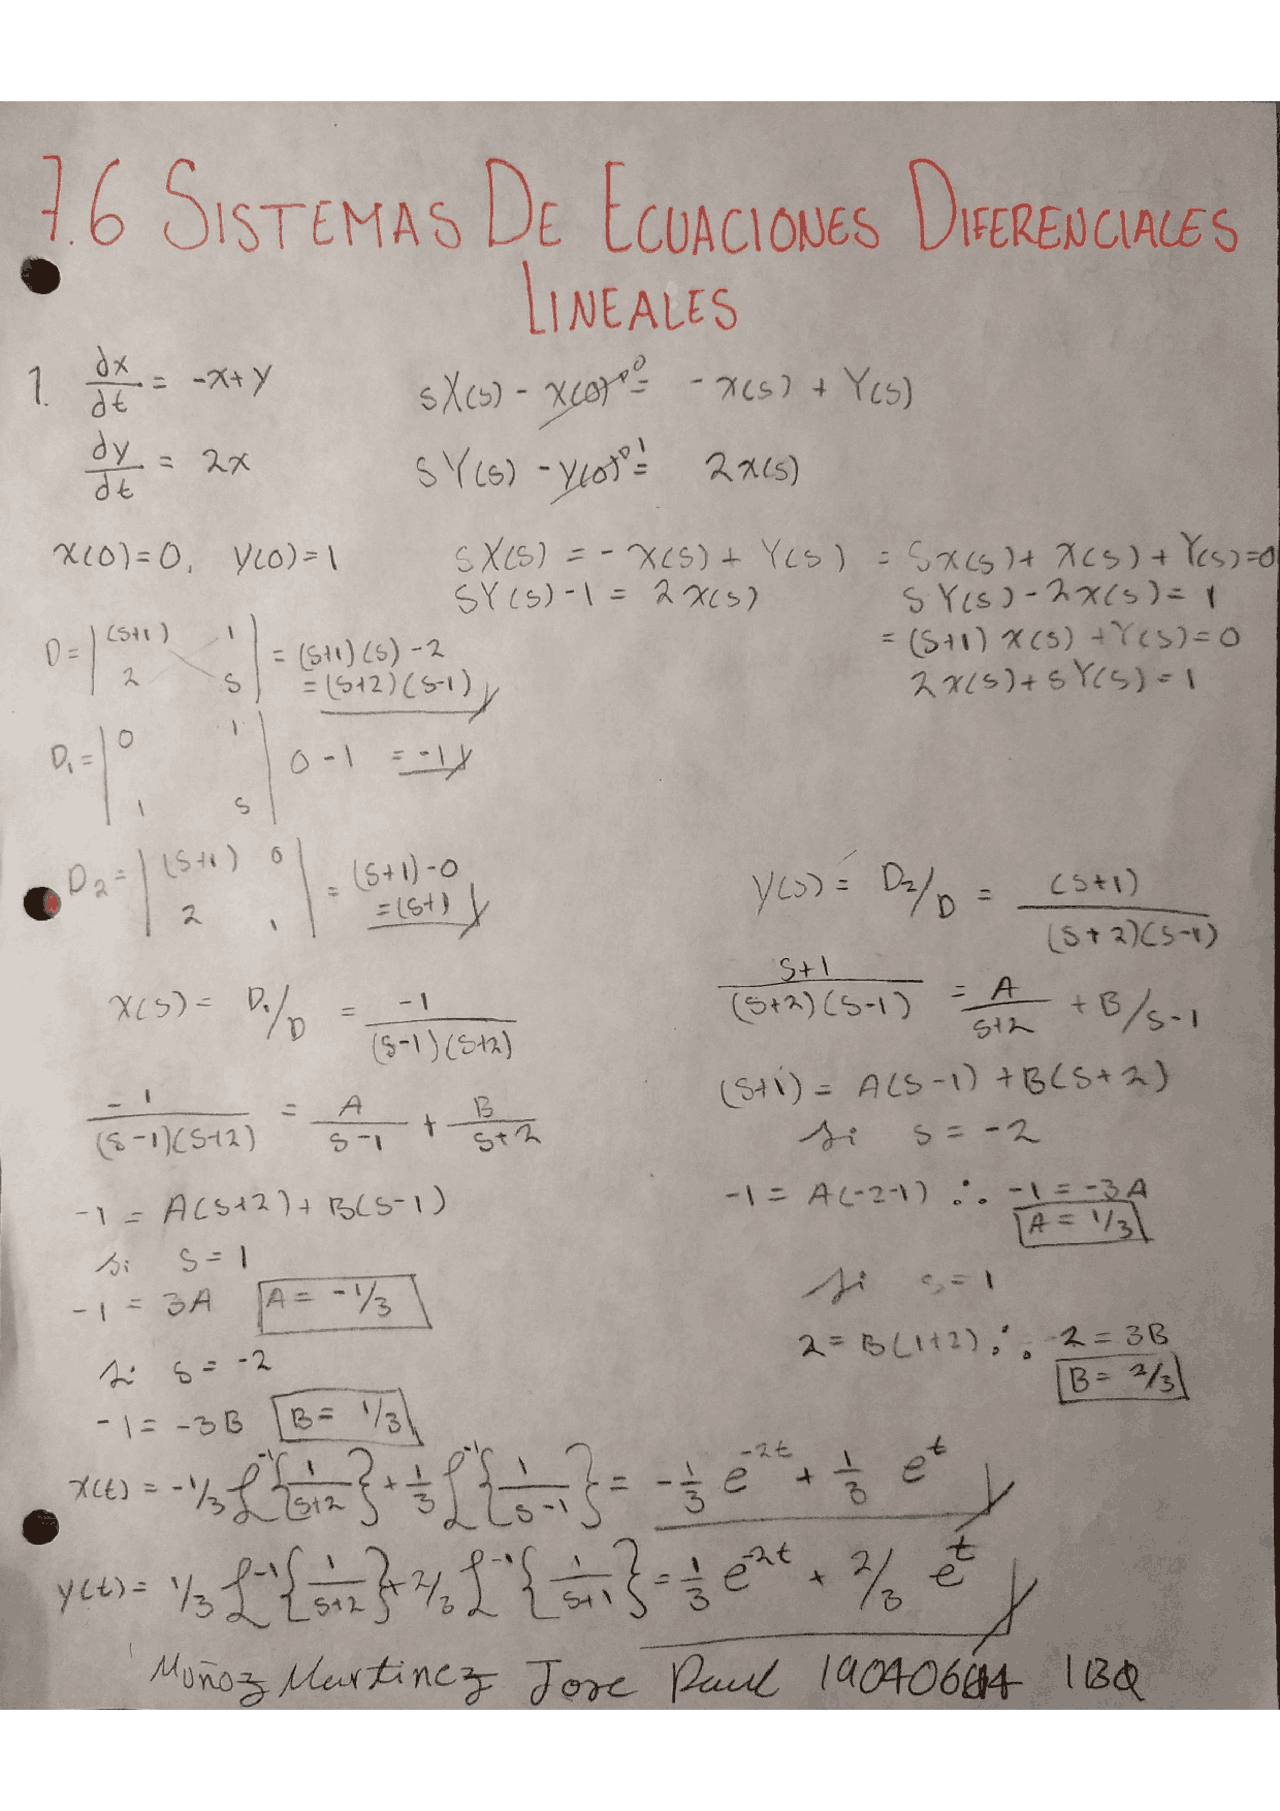 7.6 SISTEMAS DE ECUACIONES DIFERENCIALES
LINEALES
1. dx/dt = -x+y
dy/dt = 2x
sX(s) - x(0)→0 = -x(s) + Y(s)
sY(s) - y(0)→1 = 2x(s)
x(0)=0, y(0)=1
sX(s) = -x(s) + Y(s) = sx(s)+ x(s) + Y(s)=0
sY(s)-1 = 2x(s)
sY(s)-2x(s)= 1
= (s+1) x(s) +Y(s)=0
2x(s)+sY(s)=1
D= |(s+1) 1
2 s| = (s+1)(s) -2
= (s+2)(s-1)
D₁= |0 1
1 s| 0-1 = -1
D₂= |(s+1) 0
2 1| = (s+1)-0
=(s+1)
x(s)= D₁/D = -1/(s-1)(s+2)
-1/(s-1)(s+2) = A/s-1 + B/s+2
-1 = A(s+2)+B(s-1)
Si s=1
-1 = 3A A= -1/3
Si s=-2
-1= -3B B= 1/3
y(s)= D₂/D = (s+1)/(s+2)(s-1)
s+1/(s+2)(s-1) = A/s+2 + B/s-1
(s+1) = A(s-1) +B(s+2)
Si s=-2
-1= A(-2-1) ∴ -1=-3A
A= 1/3
Si s=1
2= B(1+2) ∴ 2=3B
B= 2/3
x(t) = -1/3 ℒ⁻¹{1/s+2} + 1/3 ℒ⁻¹{1/s-1} = -1/3 e^-2t + 1/3 e^t
y(t)= 1/3 ℒ⁻¹{1/s+2} + 2/3 ℒ⁻¹{1/s+1} = 1/3 e^-2t + 2/3 e^t
Muñoz Martinez Jose Paul IBQ